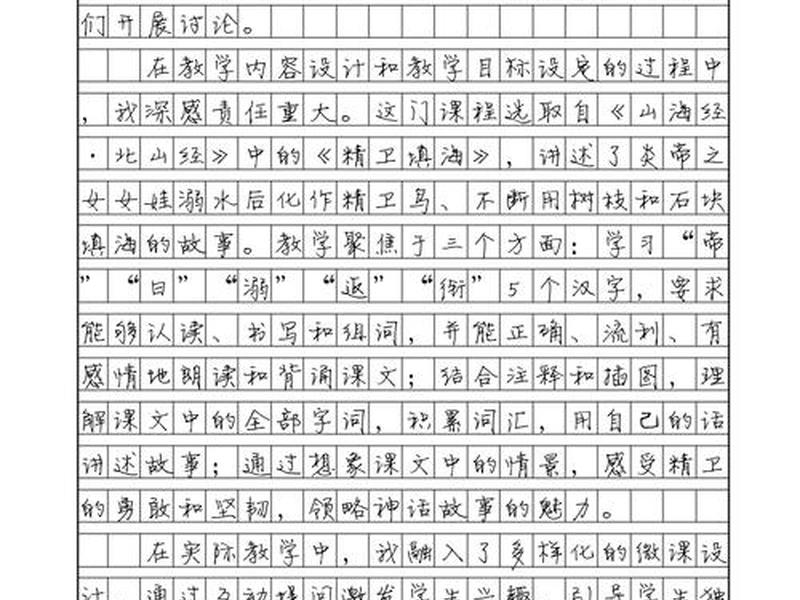 们开展讨论。
在教学内容设计和教学目标设定的过程中
，我深感责任重大。这门课程选取自《山海经
·北山经》中的《精卫填海》，讲述了炎帝之
女女娃溺水后化作精卫鸟、不断用树枝和石块
填海的故事。教学聚焦于三个方面：学习“帝
”“曰”“溺”“返”“衔”5个汉字，要求
能够认读、书写和组词，并能正确、流利、有
感情地朗读和背诵课文；结合注释和插图，理
解课文中的全部字词，积累词汇，用自己的话
讲述故事；通过想象课文中的情景，感受精卫
的勇敢和坚韧，领略神话故事的魅力。
在实际教学中，我融入了多样化的微课设
计，通过互动提问激发学生兴趣，引导学生独